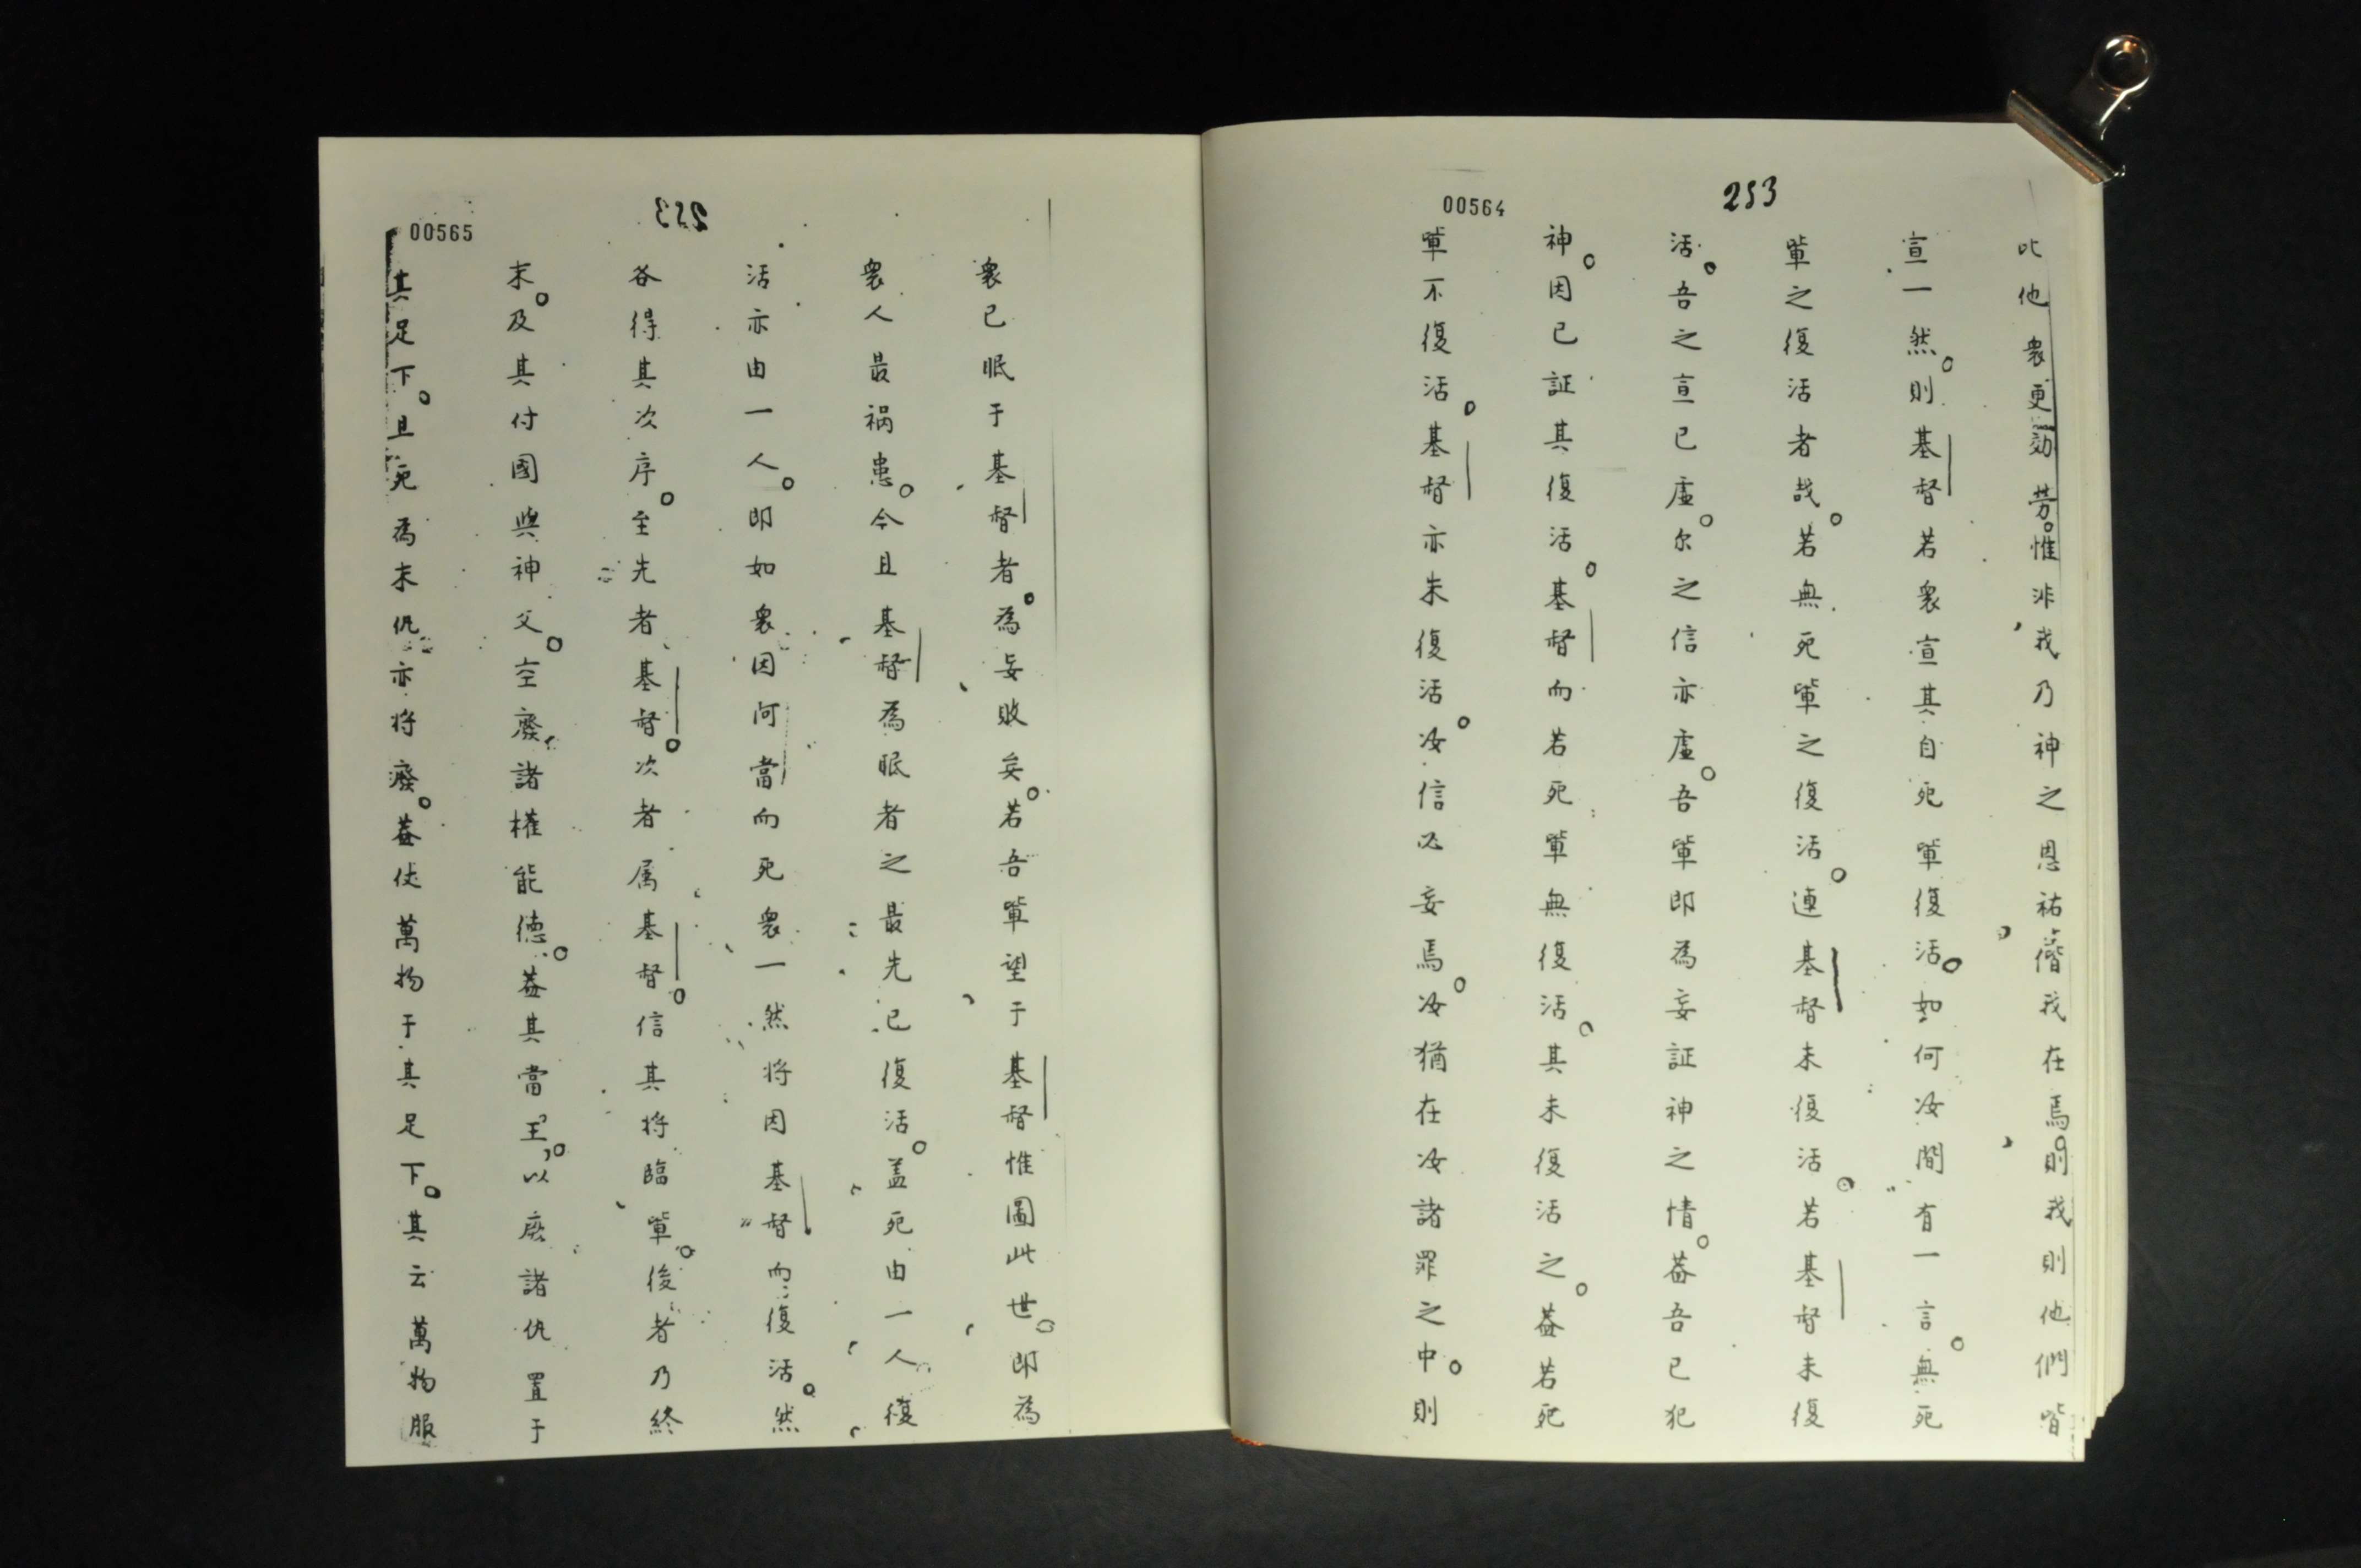 253
00564
比他衆更効劳。惟非我乃神之恩祐偕我在焉。則我則他們皆
宣一然。則基督若衆宣其自死軰復活。如何汝間有一言。無死
軰之復活者哉。若無死軰之復活。連基督未復活。若基督未復
活。吾之宣已虛。尔之信亦虛。吾軰即為妄証神之情。蓋吾已犯
神。因已証其復活基督。而若死軰無復活。其未復活之。蓋若死
軰不復活。基督亦未復活。汝信必妄焉。汝猶在汝諸罪之中。則
253
00565
衆已眠于基督者。為妄敗矣。若吾軰望于基督惟圖此世。即為
衆人最祸患。今且基督為眠者之最先已復活。盖死由一人復
活亦由一人。即如衆因阿當而死衆一然将因基督而復活。然
各得其次序。至先者基督。次者属基督。信其将臨軰。後者乃終
末。及其付國與神父。空廢諸權能德。蓋其當王。以廢諸仇置于
其足下。且死為末仇亦将廢。蓋伏萬物于其足下。其云萬物服